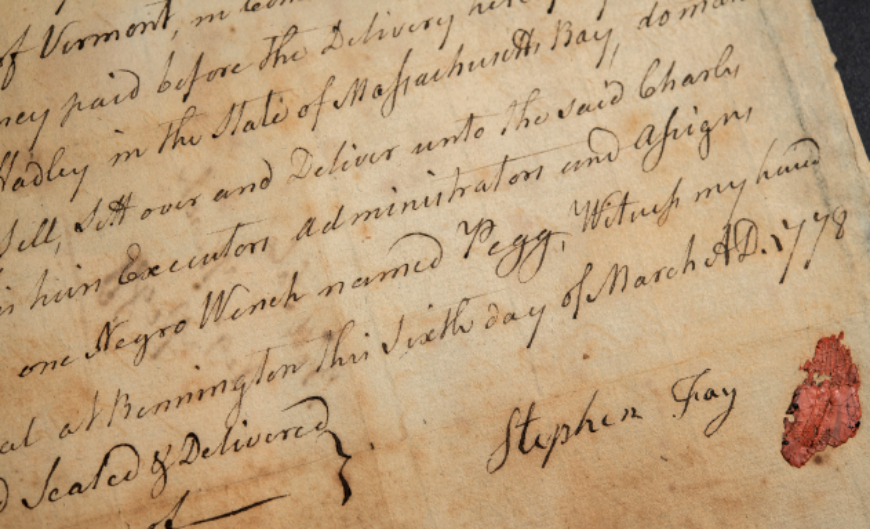 of Vermont, in Con
ney paid before the Delivery here
Hadley in the State of Massachusetts Bay, do man
Sell, Sett over and Deliver unto the said Charles
is heirs Executors Administrators and Assigns
one Negro Wench named Pegg, Witness my hand
al at Bennington this Sixth day of March AD. 1778
d Sealed & Delivered
of
Stephen Fay